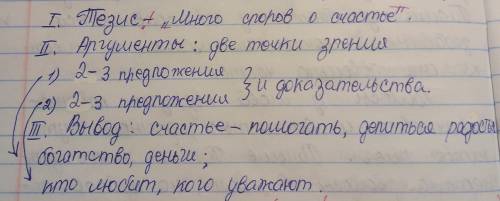 I. Тезис + „Много споров о счастье".
II. Аргументы : две точки зрения
1) 2-3 предложения } и доказательства.
2) 2-3 предложения
III. Вывод : счастье – помогать, делиться радостью
богатство, деньги ;
кто любит, кого уважают.